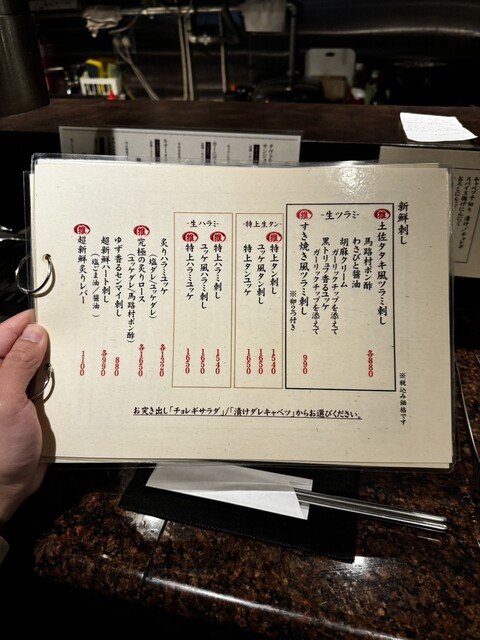 新鮮刺し
-生ツラミ-
推
土佐タタキ風ツラミ刺し
馬路村ポン酢
わさびと醤油
胡麻クリーム
ガーリックチップを添えて
黒トリュフ香るユッケ
ガーリックチップを添えて
各880
推
すき焼き風ツラミ刺し
※卵うろ付き
980
-特上生タン-
推
特上タン刺し
1540
ユッケ風タン刺し
1650
推
特上タンユッケ
1650
-生ハラミ-
推
特上ハラミ刺し
1540
ユッケ風ハラミ刺し
1650
推
特上ハラミユッケ
1650
炙りハラミユッケ
(塩ダレ/ユッケダレ)
各1320
推
究極の炙りロース
(ユッケダレ/馬路村ポン酢)
各1650
ゆず香るセンマイ刺し
880
超新鮮ハート刺し
(塩ごま油/醤油)
各990
推
超新鮮炙りレバー
1100
※税込み価格です
お突き出し「チョレギサラダ」/「漬けダレキャベツ」からお選びください。